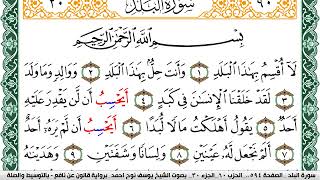 ٣٠ سُورَةُ البَلَدِ ٩٠
بِسْمِ اللَّهِ الرَّحْمَٰنِ الرَّحِيمِ
لَا أُقْسِمُ بِهَٰذَا الْبَلَدِ ١ وَأَنتَ حِلُّ بِهَٰذَا الْبَلَدِ ٢ وَوَالِدٍ وَمَا وَلَدَ
٣ لَقَدْ خَلَقْنَا الْإِنسَٰنَ فِي كَبَدٍ ٤ أَيَحْسِبُ أَن لَّن يَقْدِرَ عَلَيْهِ
أَحَدٌ ٥ يَقُولُ أَهْلَكْتُ مَالًا لُّبَدًا ٦ أَيَحْسِبُ أَن لَّمْ يَرَهُ أَحَدٌ
٧ أَلَمْ نَجْعَل لَّهُ عَيْنَيْنِ ٨ وَلِسَانًا وَشَفَتَيْنِ ٩ وَهَدَيْنَٰهُ
سورة البلد . الصفحة ٥٩٤. الحزب ٦٠. الجزء ٣٠. بصوت الشيخ يوسف نوح احمد برواية قالون عن نافع - بالتوسيط والصلة